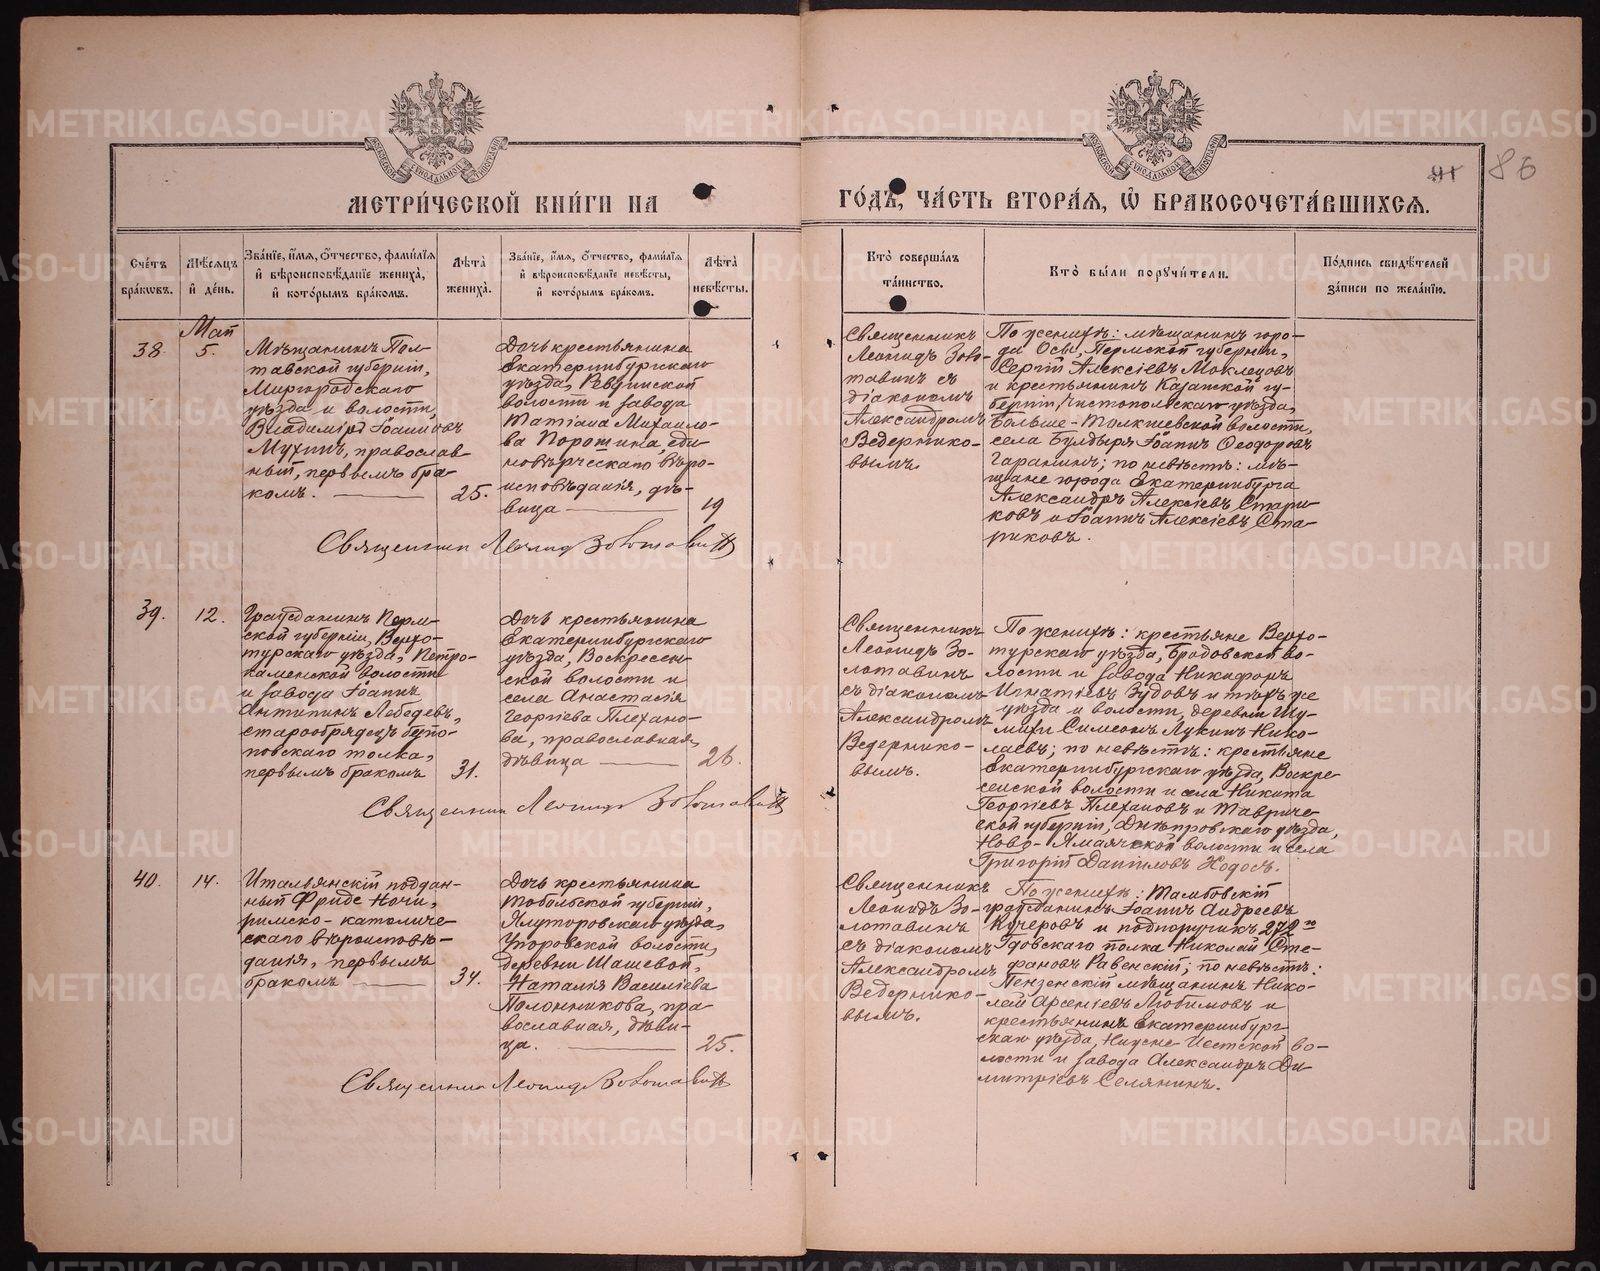 МЕТРИ́ЧЕСКОЙ КНИ́ГИ НА
ГО́ДЪ, ЧА́СТЬ ВТОРА́Я, Ѡ҆ БРАКОСОЧЕТА́ВШИХСЯ.
91 86
Сче́тъ
бра́кѡвъ.
Мѣ́сяцъ
и҆ де́нь.
Зва́нїе, и҆́мя, ѻ҆́тчество, фами́лїя
и҆ вѣроисповѣ́данїе жениха̀,
и҆ кото́рымъ бра́комъ.
Лѣ́та
жениха̀.
Зва́нїе, и҆́мя, ѻ҆́тчество, фами́лїя
и҆ вѣроисповѣ́данїе невѣ́сты,
и҆ кото́рымъ бра́комъ.
Лѣ́та
невѣ́сты.
Кто̀ соверша́лъ
та́инство.
Кто̀ бы́ли порꙋчи́тели.
По́дпись свидѣ́телей
за́писи по жела́нїю.
Май
38.
5.
Мѣщанинъ Пол-
тавской губерніи,
Миргородскаго
уѣзда и волости,
Владиміръ Іоанновъ
Мухинъ, православ-
ный, первымъ бра-
комъ.
25.
Дочь крестьянина
Екатеринбургскаго
уѣзда, Ревдинской
волости и завода
Татіана Михаило-
ва Порошина, еди-
новѣрческаго вѣро-
исповѣданія, дѣ-
вица
19
Священникъ
Леонидъ Золо-
тавинъ съ
діакономъ
Александромъ
Ведернико-
вымъ.
По женихѣ: мѣщанинъ горо-
да Осы, Пермской губерніи,
Сергій Алексіевъ Моклецовъ
и крестьянинъ Казанской гу-
берніи, Чистопольскаго уѣзда,
Больше-Толкишевской волости,
села Булдыря Іоаннъ Ѳеодоровъ
Гаранинъ; по невѣстѣ: мѣ-
щане города Екатеринбурга
Александръ Алексіевъ Стари-
ковъ и Іоаннъ Алексіевъ Ста-
риковъ.
Священникъ Леонидъ Золотавинъ
39.
12.
Гражданинъ Перм-
ской губерніи, Верхо-
турскаго уѣзда, Петро-
каменской волости
и завода Іоаннъ
Антипинъ Лебедевъ,
старообрядецъ безпо-
повскаго толка,
первымъ бракомъ
31.
Дочь крестьянина
Екатеринбургскаго
уѣзда, Воскресен-
ской волости и
села Анастасія
Георгіева Плехано-
ва, православная,
дѣвица
26.
Священникъ
Леонидъ Зо-
лотавинъ
съ діакономъ
Александромъ
Ведернико-
вымъ.
По женихѣ: крестьяне Верхо-
турскаго уѣзда, Бродовской во-
лости и завода Никифоръ
Игнатіевъ Зудовъ и тѣхъ же
уѣзда и волости, деревни Шу-
михи Симеонъ Лукинъ Нико-
лаевъ; по невѣстѣ: крестьяне
Екатеринбургскаго уѣзда, Воскре-
сенской волости и села Никита
Георгіевъ Плехановъ и Тавриче-
ской губерніи, Днѣпровскаго уѣзда,
Ново-Ямаячской волости и села
Григорій Даніиловъ Ходосъ.
Священникъ Леонидъ Золотавинъ
40.
14.
Итальянскій поддан-
ный Фриде Ночи,
римско-католиче-
скаго вѣроисповѣ-
данія, первымъ
бракомъ
34.
Дочь крестьянина
Тобольской губерніи,
Ялуторовскаго уѣзда,
Упоровской волости,
деревни Шашевой,
Наталія Василіева
Полонникова, пра-
вославная, дѣви-
ца.
25.
Священникъ
Леонидъ Зо-
лотавинъ
съ діакономъ
Александромъ
Ведернико-
вымъ.
По женихѣ: Тамбовскій
гражданинъ Іоаннъ Андреевъ
Кучеровъ и подпоручикъ 272го
Гдовскаго полка Николай Сте-
фановъ Равенскій; по невѣстѣ:
Пензенскій мѣщанинъ Нико-
лай Арсеніевъ Любимовъ и
крестьянинъ Екатеринбург-
скаго уѣзда, Нижне Исетской во-
лости и завода Александръ Ди-
митріевъ Селянинъ.
Священникъ Леонидъ Золотавинъ
METRIKI.GASO-URAL.RU